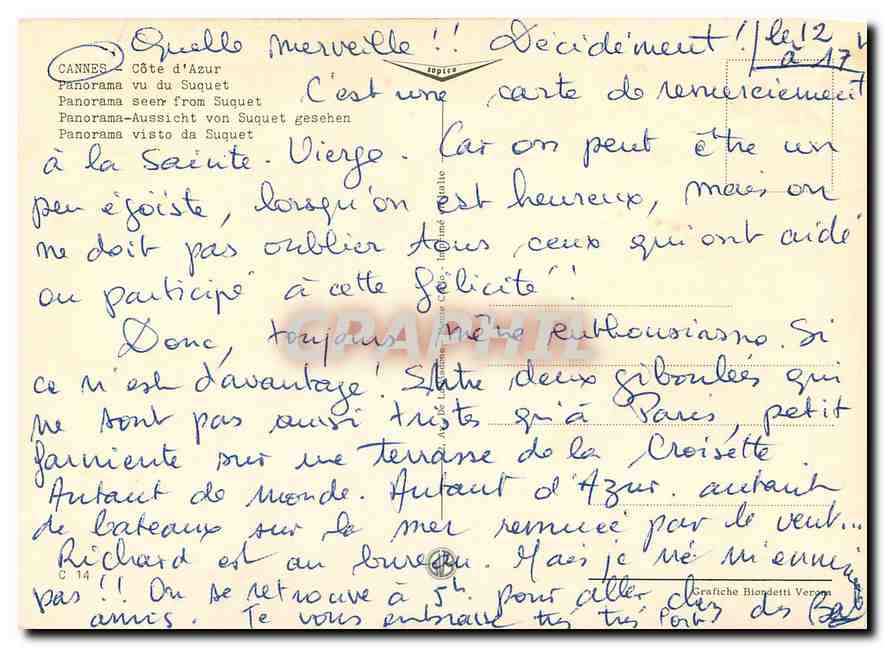 Quelle merveille !! Décidément ! le 12
à 17 h
CANNES - Côte d'Azur
Panorama vu du Suquet
Panorama seen from Suquet
Panorama-Aussicht von Suquet gesehen
Panorama visto da Suquet
sopico
C'est une carte de remerciement
à la Sainte-Vierge. Car on peut être un
peu égoïste, lorsqu'on est heureux, mais on
ne doit pas oublier tous ceux qui ont aidé
ou participé à cette félicité !
Donc, toujours même enthousiasme. Si
ce n'est d'avantage ! Entre deux giboulées qui
ne sont pas aussi tristes qu'à Paris, petit
farniente sur une terrasse de la Croisette
Autant de monde. Autant d'Azur. autant
de bateaux sur la mer remuée par le vent...
Richard est au bureau. Mais je ne m'ennuie
pas !! On se retrouve à 5h. pour aller chez des
amis. Je vous embrasse très très fort
C 14
Grafiche Biondetti Verona
Imprimé en Italie
CPAPHIL